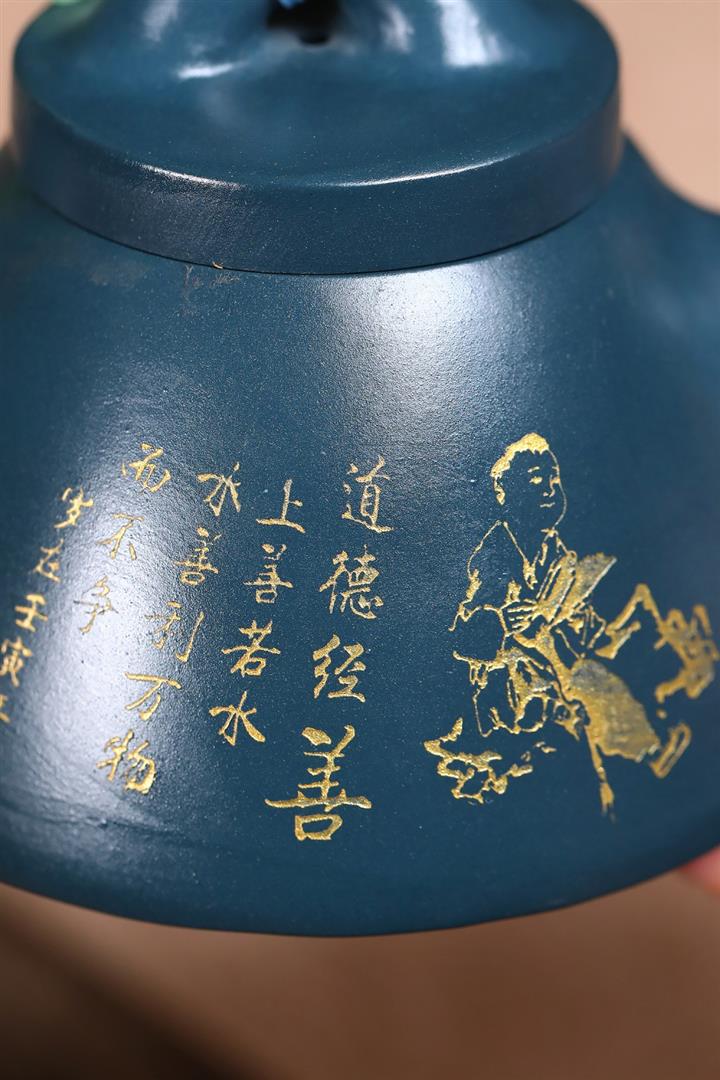 道德经善
上善若水
水善利万物
而不争
岁在壬寅